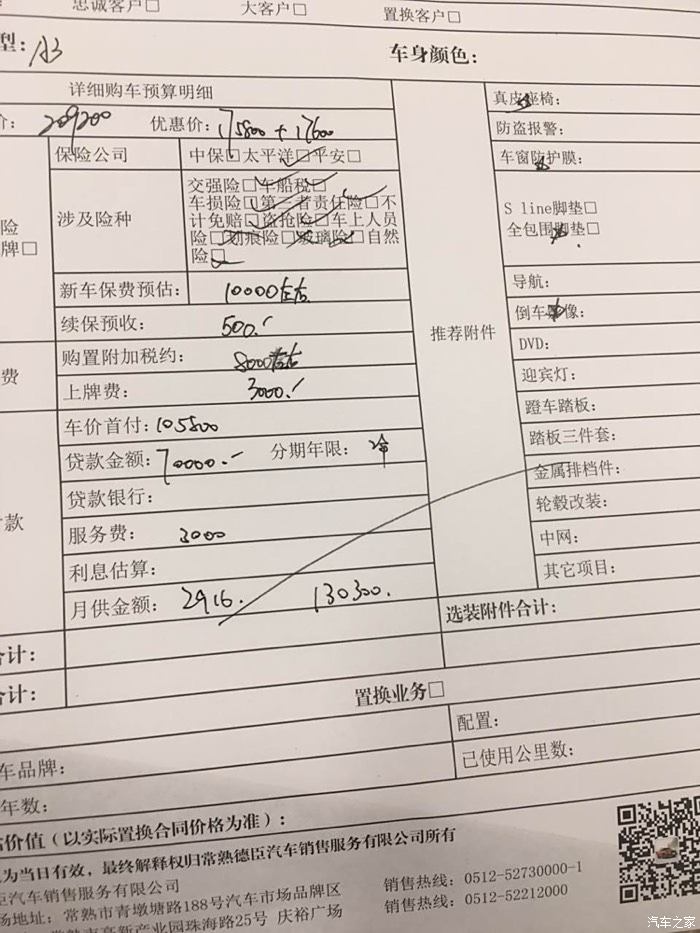 忠诚客户□ 大客户□ 置换客户□
型: A3 车身颜色:
详细购车预算明细
价: 209200 优惠价: 175800 + 17600
保险公司 中保□太平洋□平安□
险
牌□
涉及险种
交强险□车船税□
车损险□第三者责任险□不
计免赔□盗抢险□车上人员
险□划痕险□玻璃险□自然
险□
新车保费预估: 10000左右
续保预收: 500.
费
购置附加税约: 8000左右
上牌费: 3000.
车价首付: 105800
贷款金额: 70000. 分期年限:
贷款银行:
款
服务费: 3000
利息估算:
月供金额: 2916. 130300.
合计:
合计:
推荐附件
真皮座椅:
防盗报警:
车窗防护膜:
S line脚垫□
全包围脚垫□
导航:
倒车影像:
DVD:
迎宾灯:
蹬车踏板:
踏板三件套:
金属排档件:
轮毂改装:
中网:
其它项目:
选装附件合计:
置换业务□
车品牌: 配置:
年数: 已使用公里数:
估价值（以实际置换合同价格为准）:
为当日有效，最终解释权归常熟德臣汽车销售服务有限公司所有
臣汽车销售服务有限公司 销售热线: 0512-52730000-1
场地址: 常熟市青墩塘路188号汽车市场品牌区 销售热线: 0512-52212000
常熟市高新产业园珠海路25号 庆裕广场
汽车之家